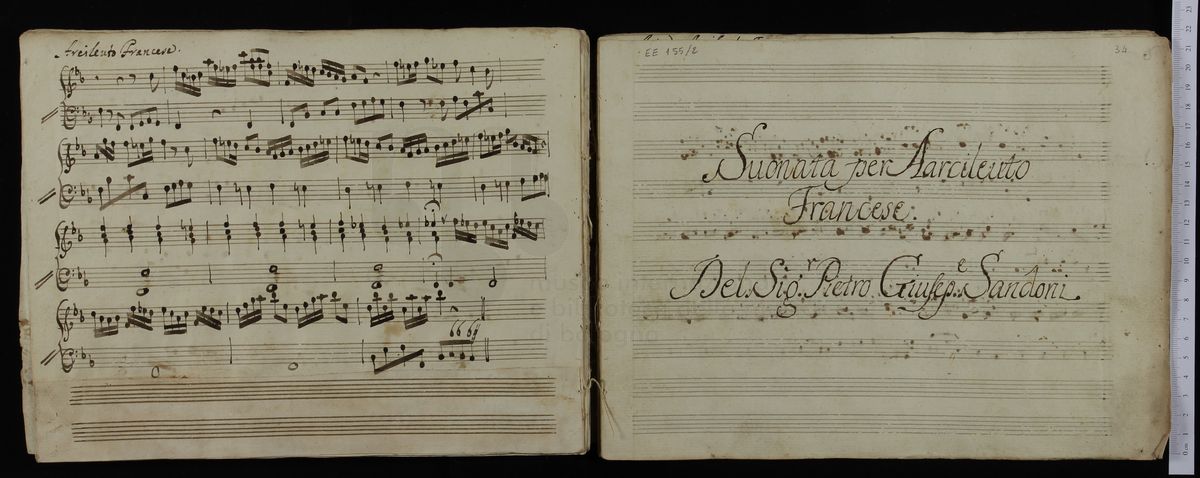 Arcileuto Francese.
EE 155/2
34
Suonata per Aarcileuto
Francese:
Del. Sig.r Pietro Giusep.e Sandoni
museo
di bologna